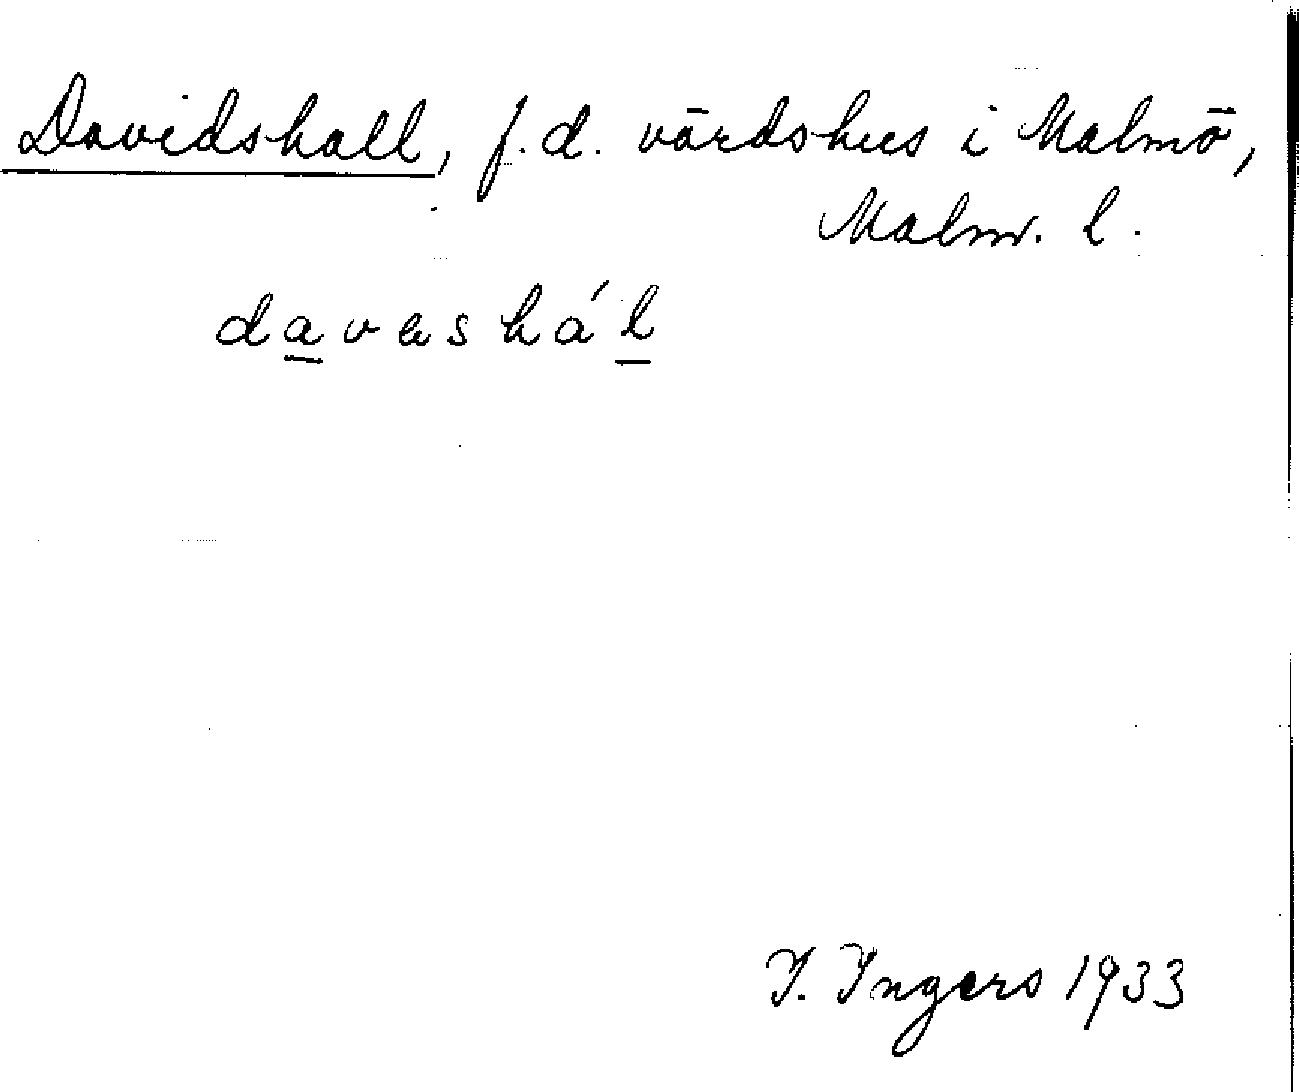 Davidshall, f.d. värdshus i Malmö,
Malm. l.
davashál
I. Ingers 1933